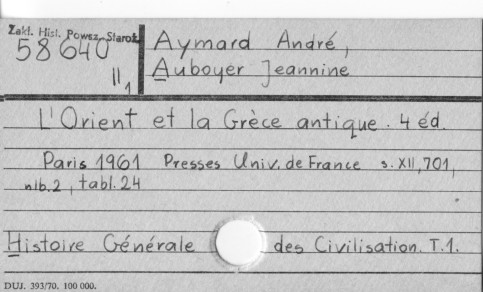 Zakł. Hist. Powsz. Staroż.
58640
II,1
Aymard André,
Auboyer Jeannine
L'Orient et la Grèce antique. 4 éd.
Paris 1961 Presses Univ. de France s. XII, 701,
nlb. 2, tabl. 24
Histoire Générale des Civilisation. T.1.
DUJ. 393/70. 100 000.